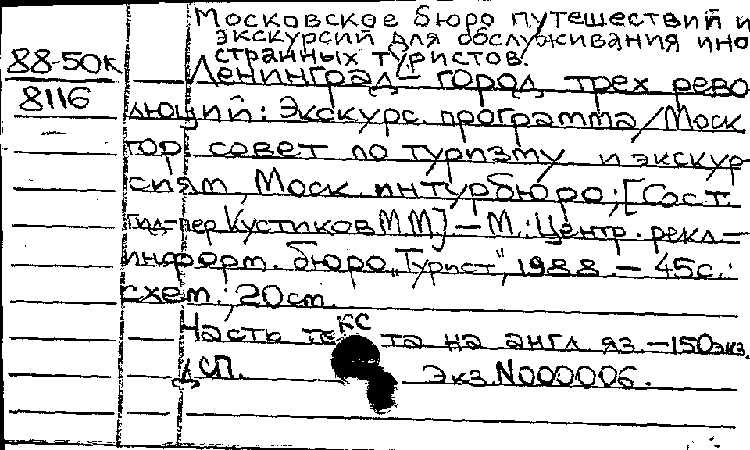 Московское бюро путешествий и
экскурсий для обслуживания ино
странных туристов.
88-50к
Ленинград - город трех рево
8116
люций: Экскурс. программа/Моск
гор. совет по туризму и экскур
сиям, Моск. интурбюро; [Сост.
гид-пер Кустиков М М] - М.: Центр. рекл-
информ. бюро „Турист", 1988. - 45с.:
схем.; 20 см.
Часть текста на англ яз. - 150экз.
ДСП. Экз. N000006.